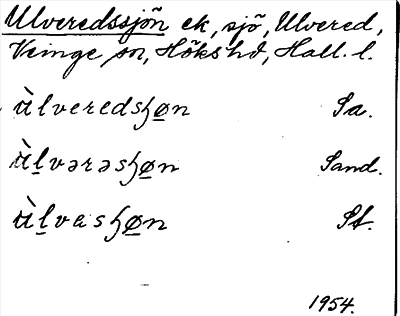 Ulveredssjön ek, sjö, Ulvered,
Veinge sn, Höks hd, Hall. l.
ùlveredsɧøn Sa.
ùlvərəsɧøn Sand.
ùlvasɧøn St.
1954.